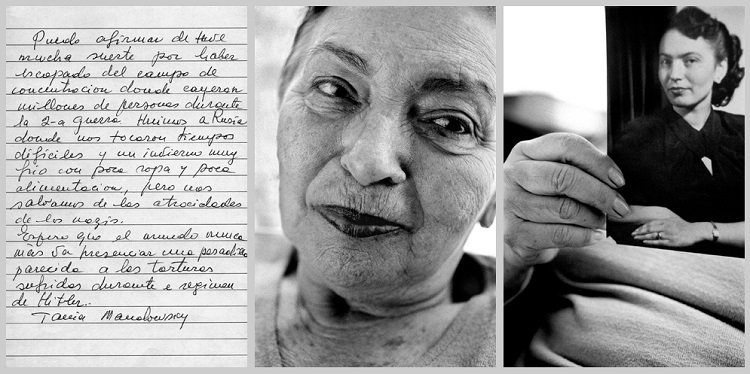 Puedo afirmar de tuve
mucha suerte por haber
escapado del campo de
concentracion donde cayeron
millones de personas durante
la 2-a guerra. Huimos a Rusia
donde nos tocaron tiempos
dificiles y un invierno muy
frio con poca ropa y poca
alimentacion, pero nos
salvamos de las atrocidades
de los nazis.
Espero que el mundo nunca
mas va presenciar una pesadilla
parecida a las torturas
sufridas durante e regimen
de Hitler.
Tania